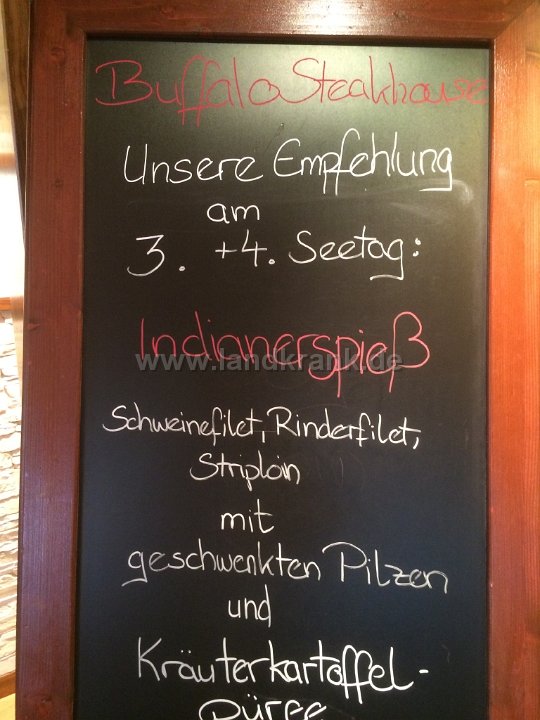 Buffalo Steakhouse
Unsere Empfehlung
am
3. +4. Seetag:
Indianerspieß
www.landkrank.de
Schweinefilet, Rinderfilet,
Striploin
mit
geschwenkten Pilzen
und
Kräuterkartoffel-
püree